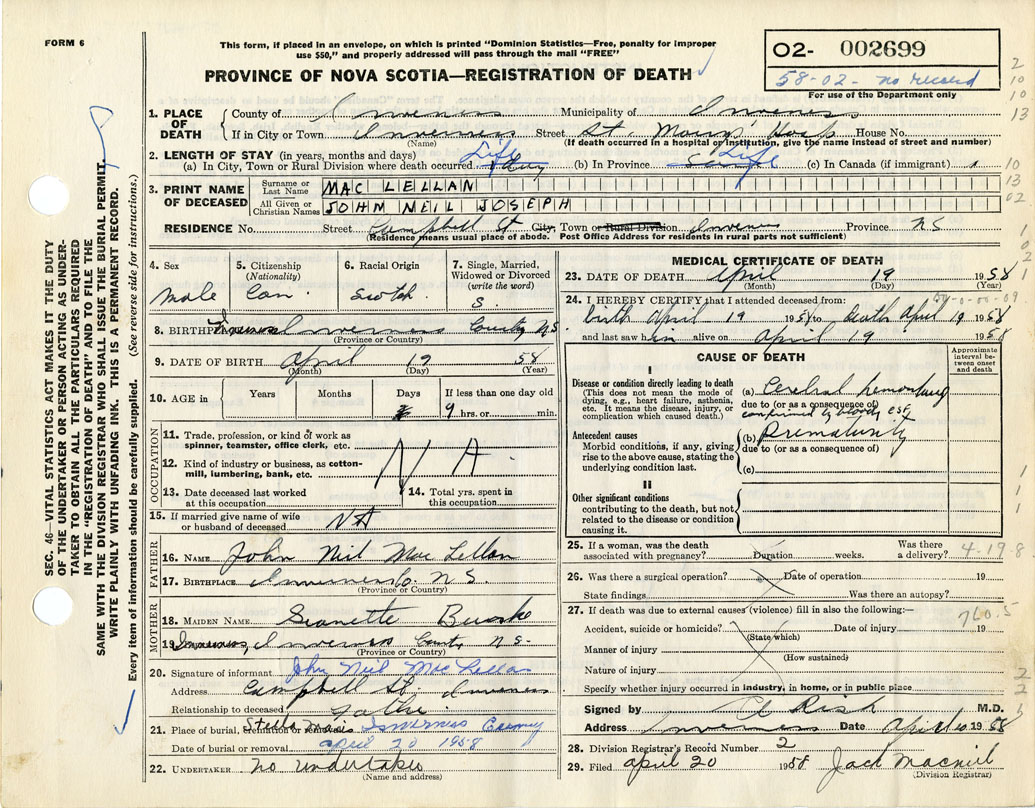 FORM 6
This form, if placed in an envelope, on which is printed "Dominion Statistics—Free, penalty for improper
use $50," and properly addressed will pass through the mail "FREE"
PROVINCE OF NOVA SCOTIA—REGISTRATION OF DEATH
02- 002699
58-02- no record
For use of the Department only
SEC. 46—VITAL STATISTICS ACT MAKES IT THE DUTY
OF THE UNDERTAKER OR PERSON ACTING AS UNDER-
TAKER TO OBTAIN ALL THE PARTICULARS REQUIRED
IN THE "REGISTRATION OF DEATH" AND TO FILE THE
SAME WITH THE DIVISION REGISTRAR WHO SHALL ISSUE THE BURIAL PERMIT.
WRITE PLAINLY WITH UNFADING INK. THIS IS A PERMANENT RECORD.
Every item of information should be carefully supplied. (See reverse side for instructions.)
1. PLACE OF DEATH
County of Inverness Municipality of Inverness
If in City or Town Inverness Street St. Mary's Hosp House No.
(Name) (If death occurred in a hospital or institution, give the name instead of street and number)
2. LENGTH OF STAY (in years, months and days)
(a) In City, Town or Rural Division where death occurred Life (b) In Province Life (c) In Canada (if immigrant)
3. PRINT NAME OF DECEASED
Surname or Last Name MAC LELLAN
All Given or Christian Names JOHN NEIL JOSEPH
RESIDENCE No. Street Campbell St City, Town or Rural Division Inverness Province NS
(Residence means usual place of abode. Post Office Address for residents in rural parts not sufficient)
4. Sex
Male
5. Citizenship
(Nationality)
Can
6. Racial Origin
Scotch
7. Single, Married,
Widowed or Divorced
(write the word)
S.
8. BIRTHPLACE Inverness Inverness County N.S.
(Province or Country)
9. DATE OF BIRTH April 19 58
(Month) (Day) (Year)
10. AGE in Years Months Days If less than one day old
9 hrs. or min.
OCCUPATION
11. Trade, profession, or kind of work as
spinner, teamster, office clerk, etc.
12. Kind of industry or business, as cotton-
mill, lumbering, bank, etc.
N A.
13. Date deceased last worked
at this occupation
14. Total yrs. spent in
this occupation
15. If married give name of wife
or husband of deceased NA
FATHER
16. NAME John Neil Mac Lellan
17. BIRTHPLACE Inverness Co. N.S.
(Province or Country)
MOTHER
18. MAIDEN NAME Jeanette
19. Inverness, Inverness County N.S.
(Province or Country)
20. Signature of informant John Neil Mac Lellan
Address Campbell St. Inverness
Relationship to deceased Father
21. Place of burial, cremation or removal Stella Maris Inverness County
Date of burial or removal april 20 1958
22. UNDERTAKER no undertaker
(Name and address)
MEDICAL CERTIFICATE OF DEATH
23. DATE OF DEATH April 19 1958
(Month) (Day) (Year)
24. I HEREBY CERTIFY that I attended deceased from:
birth April 19 1958 to death April 19 1958
and last saw him alive on April 19 1958
CAUSE OF DEATH
Approximate
interval be-
tween onset
and death
I
Disease or condition directly leading to death
(This does not mean the mode of
dying, e.g., heart failure, asthenia,
etc. It means the disease, injury, or
complication which caused death.)
(a) Cerebral hemorrhage
due to (or as a consequence of)
confirmed by bloody csf
Antecedent causes
Morbid conditions, if any, giving
rise to the above cause, stating the
underlying condition last.
(b) Prematurity
due to (or as a consequence of)
(c)
II
Other significant conditions
contributing to the death, but not
related to the disease or condition
causing it.
25. If a woman, was the death
associated with pregnancy? Duration weeks. Was there
a delivery? 4-19-8
26. Was there a surgical operation? Date of operation 19
State findings Was there an autopsy?
27. If death was due to external causes (violence) fill in also the following:— 760.5
Accident, suicide or homicide? Date of injury 19
(State which)
Manner of injury
(How sustained)
Nature of injury
Specify whether injury occurred in industry, in home, or in public place
Signed by M.D.
Address Inverness Date April 1958
28. Division Registrar's Record Number 2
29. Filed april 20 1958 Jack Macneil
(Division Registrar)